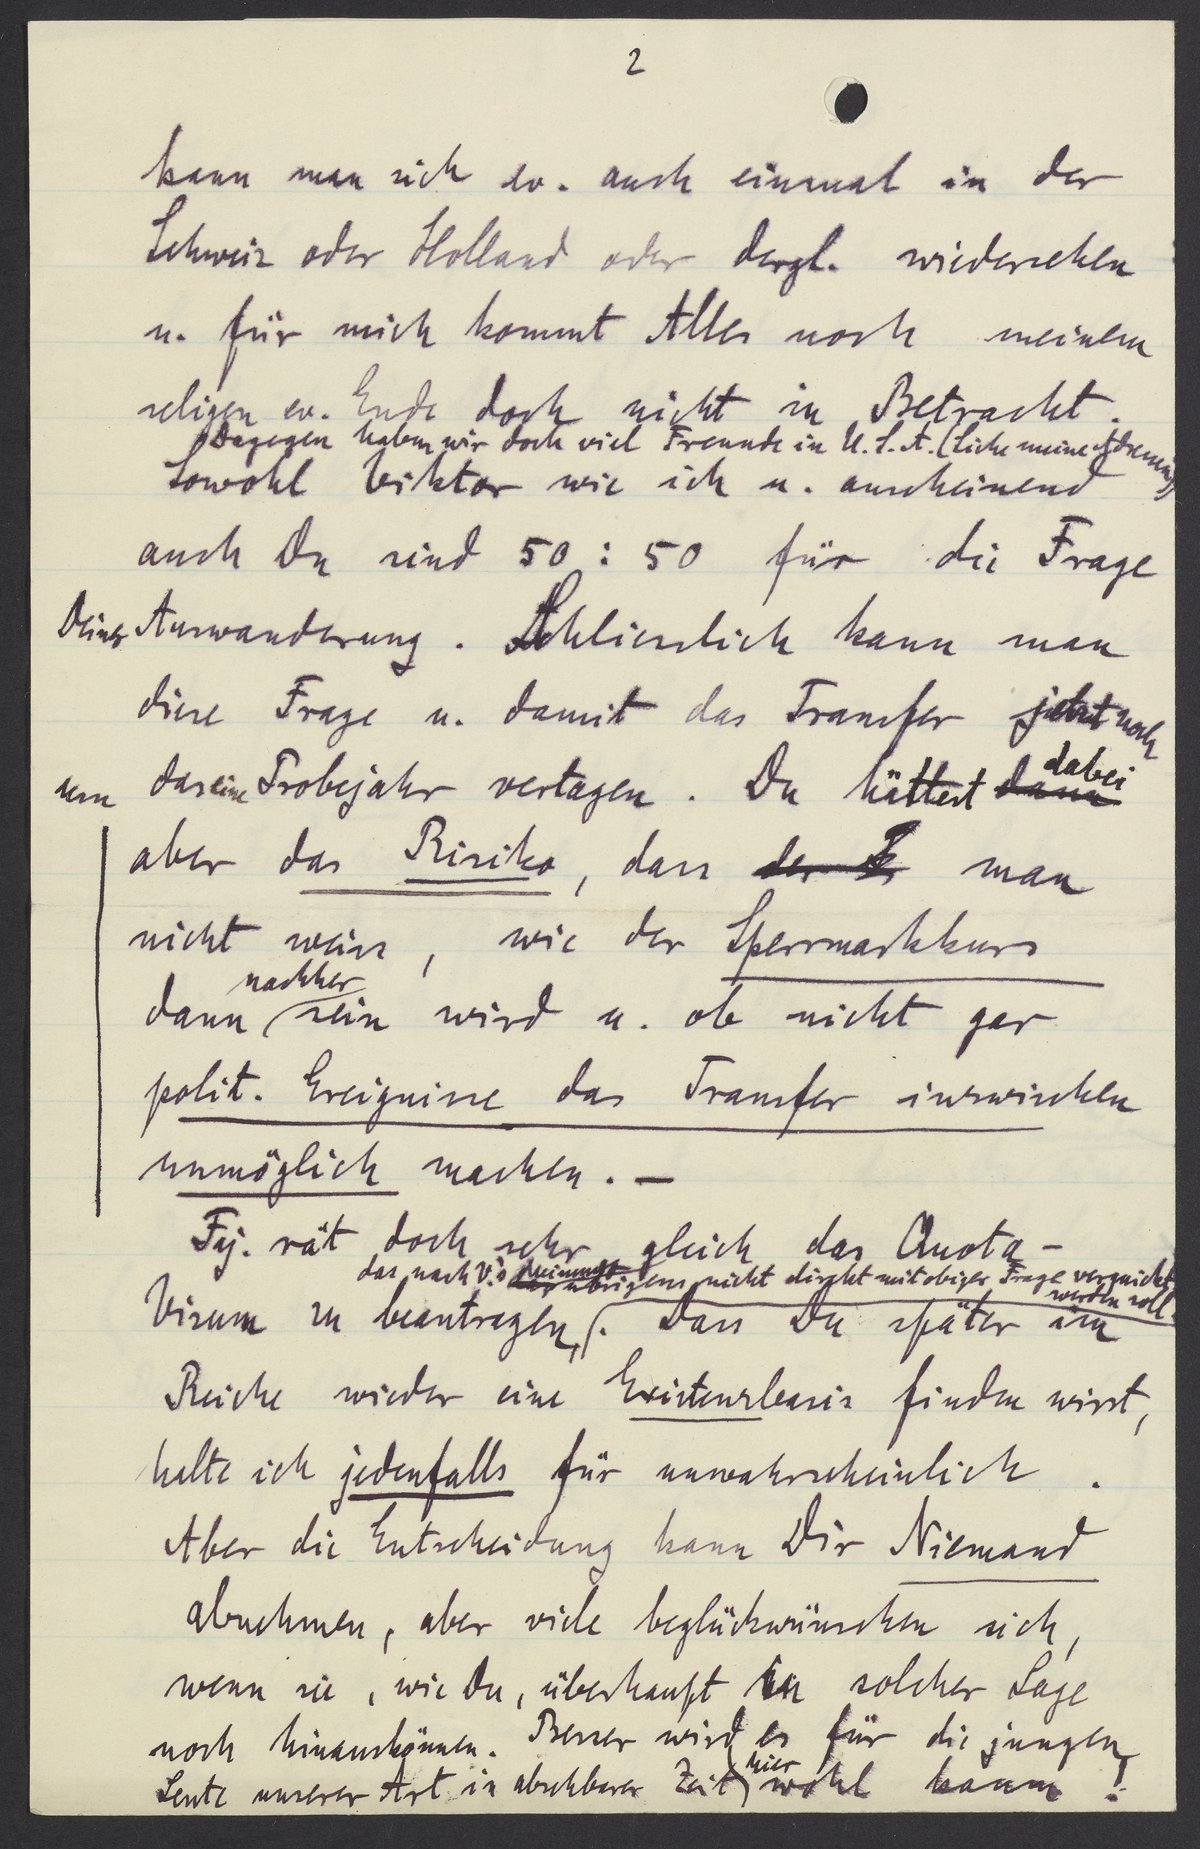 2
kann man sich ev. auch einmal in der
Schweiz oder Holland oder dergl. wiedersehen
u. für mich kommt Alles nach meinem
seligen ev. Ende doch nicht in Betracht.
Dagegen haben wir doch viel Freunde in U.S.A. (Siehe meine
Sowohl Viktor wie ich u. anscheinend
auch Du sind 50 : 50 für die Frage
Deiner Auswanderung. Schliesslich kann man
diese Frage u. damit das Transfer jetzt noch
um das eine Probejahr vertagen. Du hättest dann dabei
aber das Risiko, dass man
nicht weiss, wie der Sperrmarkkurs
dann nachher sein wird u. ob nicht gar
polit. Ereignisse das Transfer inzwischen
unmöglich machen. —
Faj. rät doch sehr gleich das Quota-
das nach V.'s Meinung übrigens nicht direkt mit obiger Frage verquickt
werden soll.
Visum zu beantragen,. Dass Du später im
Reiche wieder eine Existenzbasis finden wirst,
halte ich jedenfalls für unwahrscheinlich.
Aber die Entscheidung kann Dir Niemand
abnehmen, aber viele beglückwünschen sich,
wenn sie, wie Du, überhaupt in solcher Lage
noch hinauskönnen. Besser wird es für die jungen
Leute unserer Art in absehbarer Zeit hier wohl kaum!